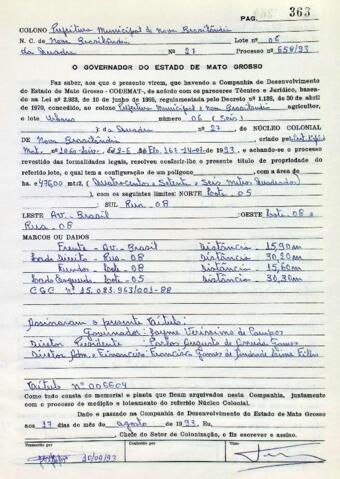 PAG. 363
COLONO Prefeitura Municipal de Nova Brasilândia
N. C. de Nova Brasilândia Lote nº 06
da Quadra Nº 27 Processo nº 658/93
O GOVERNADOR DO ESTADO DE MATO GROSSO
Faz saber, aos que o presente virem, que havendo a Companhia de Desenvolvimento
do Estado de Mato Grosso - CODEMAT-, de acordo com os pareceres Técnico e Jurídico, basea-
do na Lei nº 2.933, de 10 de junho de 1965, regulamentada pelo Decreto nº 1.138, de 30 de abril
de 1970, concedido, ao colono Prefeitura Municipal de Nova Brasilândia agricultor,
e lote Urbano nº 06 (seis)
) da Quadra nº 27, do NÚCLEO COLONIAL
de Nova Brasilândia, criado pela
1993, e achando-se o processo
revestido das formalidades legais, resolveu conferir-lhe o presente título de propriedade do
referido lote, o qual tem a configuração de um polígono com a área de
ha 476,00 mt/2, (Quatrocentos e Setenta e Seis metros Quadrados
), com os seguintes limites: NORTE Lote - 05
SUL Rua - 08
LESTE Av. Brasil OESTE Lote - 08 e
Rua - 08
MARCOS OU DADOS
Frente - Av. Brasil Distância - 15,90m
Lado Direito - Rua - 08 Distância - 30,20m
Fundos - Lote - 08 Distância - 15,60m
Lado Esquerdo - Lote - 05 Distância - 30,30m
CGC Nº 15.083.963/001-88
Assinaram o presente Título:
Governador: Jayme Verissimo de Campos
Diretor Presidente: Carlos Augusto de Arruda Gomes
Diretor Adm. e Financeiro: Francisco Gomes de Andrade Lima Filho
Título nº 006604
Como tudo consta do memorial e planta que ficam arquivados nesta Companhia, juntamente
com o processo de medição e loteamento do referido Núcleo Colonial.
Dado e passado na Companhia de Desenvolvimento do Estado de Mato Grosso
aos 17 dias do mês de agosto de 1993. Eu,
, Chefe do Setor de Colonização, o fiz escrever e assino.
Transcrito por Conferido por Visto
10/09/93